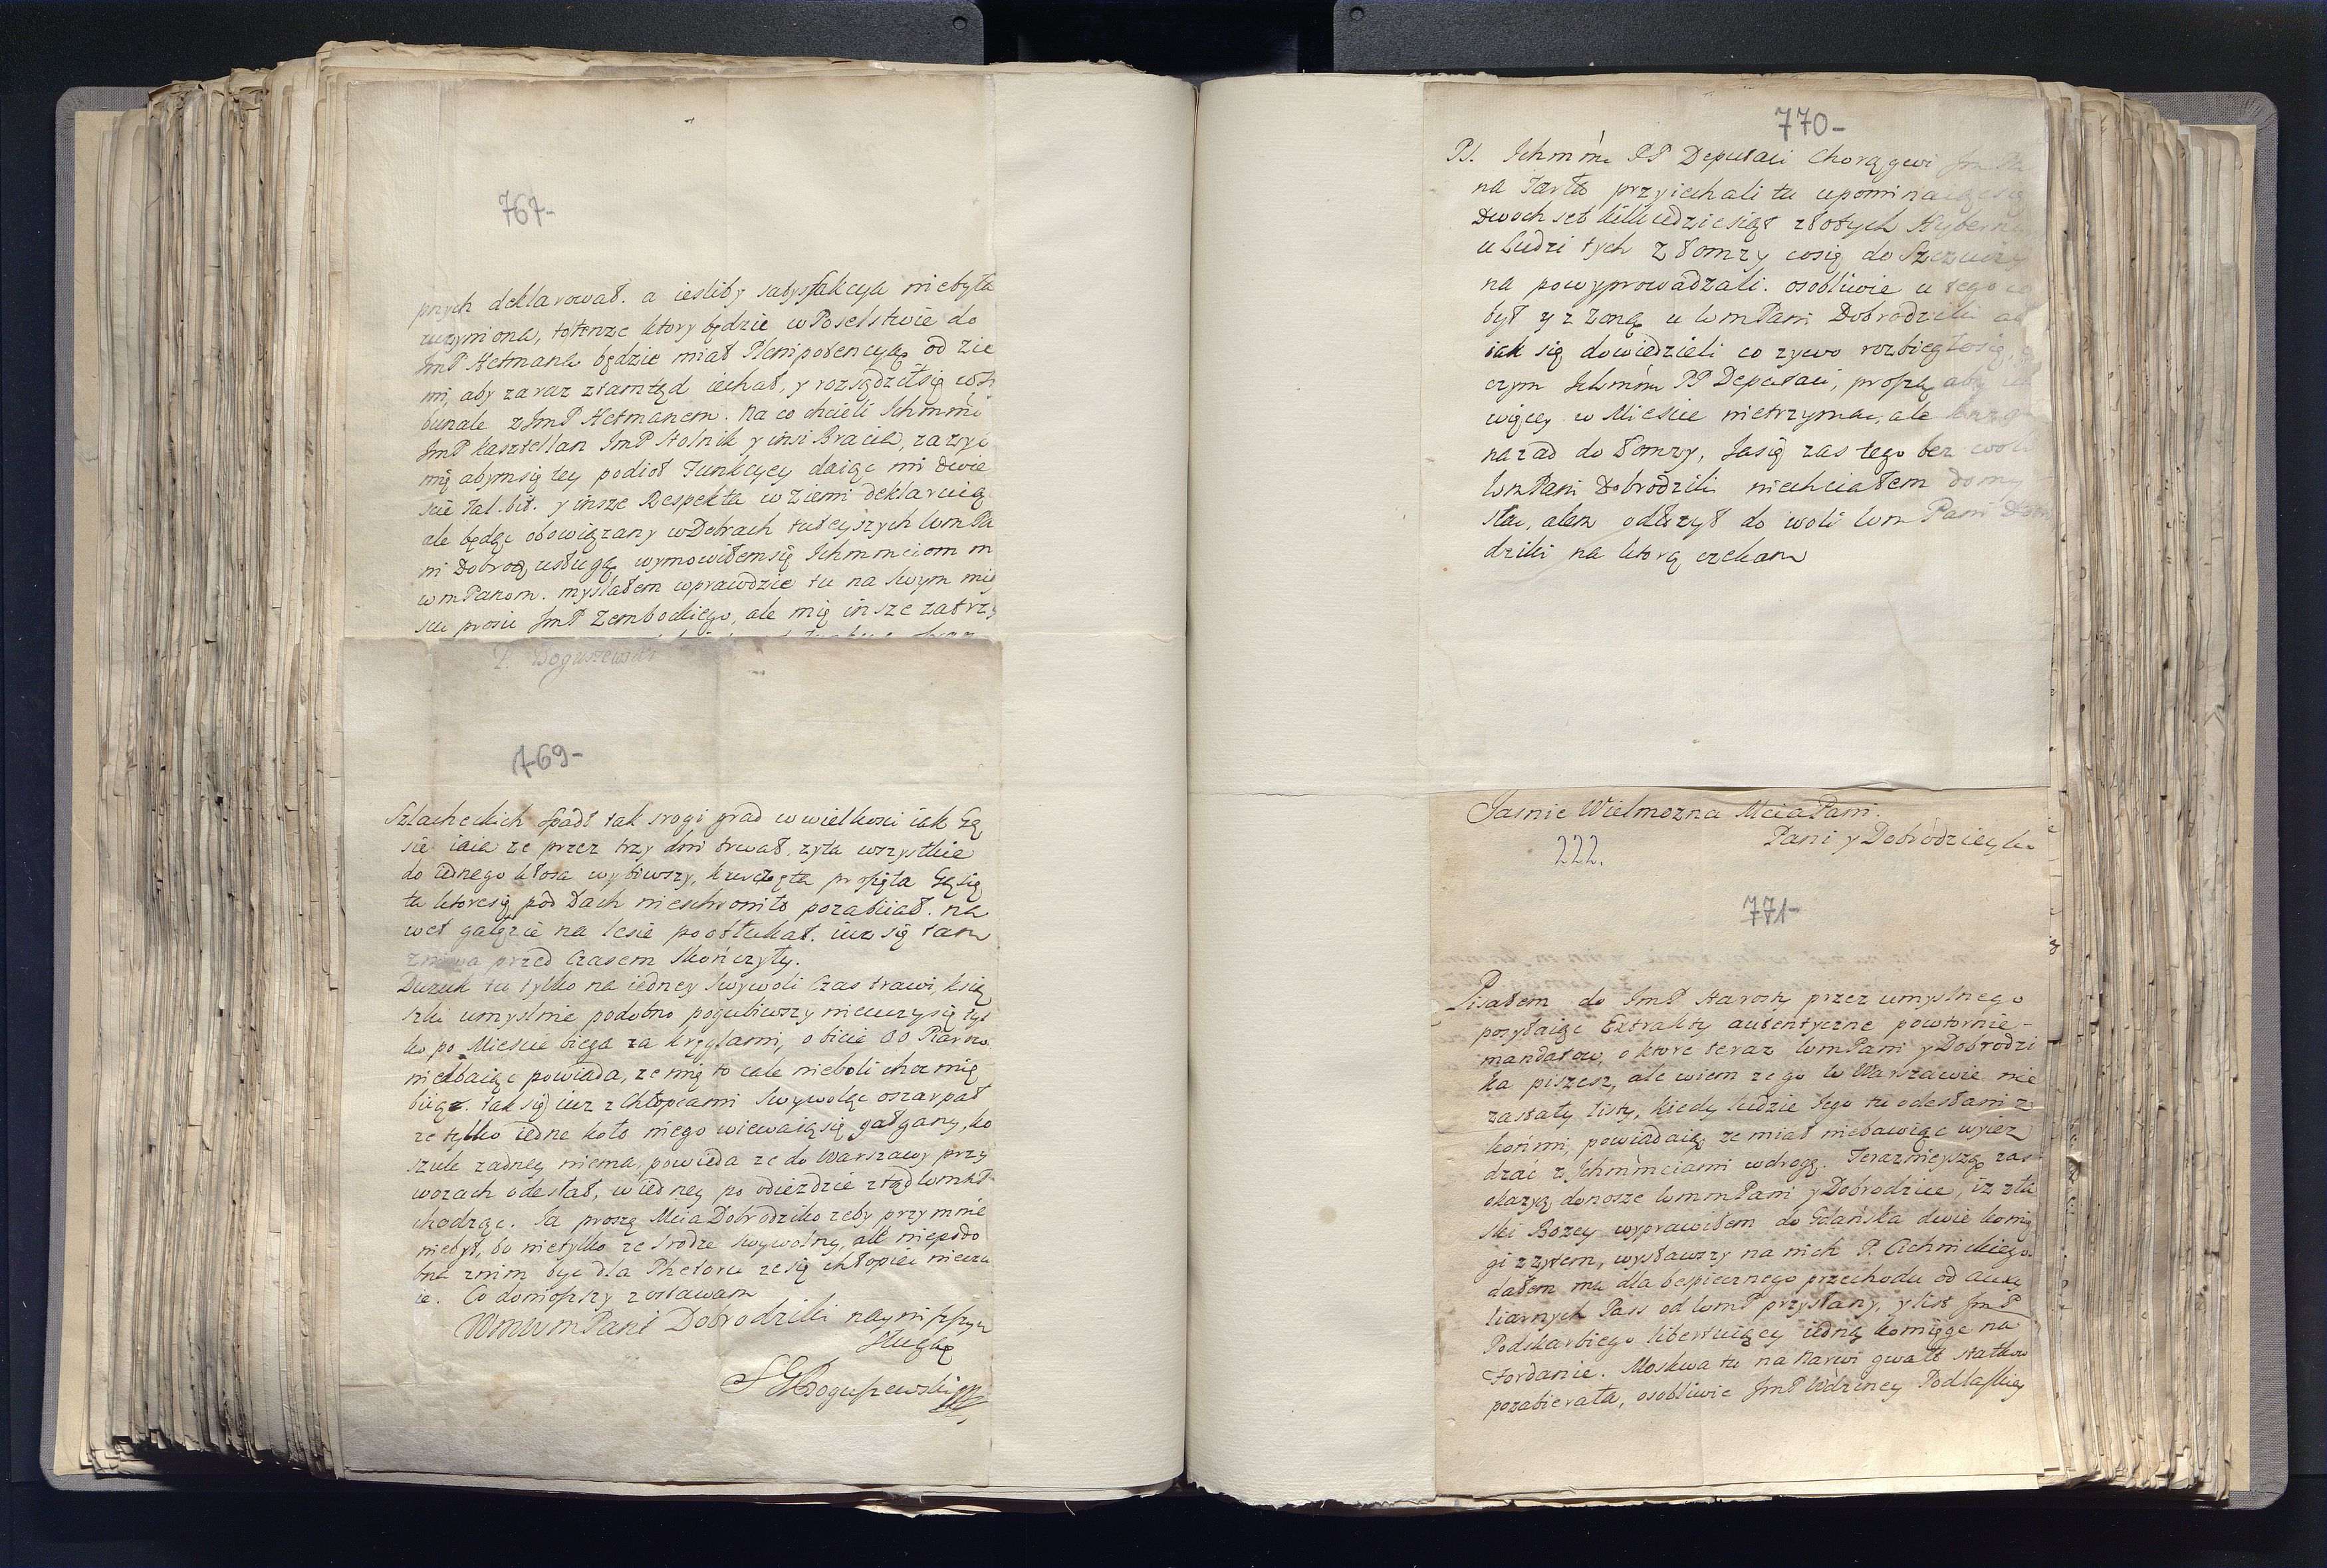 767-
pnych deklarował. a iesliby satysfakcya niebyła
uczyniona, totenze ktory będzie w Poselstwie do
JmP Hetmana będzie miał Plenipotencyą od zie
mi, aby zaraz ztamtąd iechał, y rozsądziłsię
bunale z JmP Hetmanem. Na co chcieli Ichmmci
JmP kasztellan JmP Stolnik y insi Bracia, zazyc
mię abymsię tey podioł Funkcyey daiąc mi dwie
scie Tal. bit. y insze Respekta w ziemi deklaruią
ale będąc obowiązany w Dobrach tuteyszych WmPa
ni Dobrodz usługą wymowiłemsię Ichmmciom m
wmPanom. myslałem wprawdzie tu na swym miey
scu prosic JmP Zembockiego, ale mię insze zatrzy
P. Boguszewski
769-
Szlacheckich spadł tak srogi grad w wielkosci iak Gę
sie iaia ze przez trzy dni trwał, zyta wszystkie
do iednego kłosa wybiwszy, kurczęta prosięta Gęsię
ta ktoresię pod Dach nieschroniło pozabiiał. na
wet gałęzie na lesie poobtłukał. iuz się tam
zniwa przed Czasem skończyły.
Duzuk tu tylko na iedney swywoli Czas trawi, ksią
szki umyslnie podobno pogubiwszy nieuczysię tyl
ko po Miescie biega za kręglami, o bicie OO Piarow
niedbaiąc powiada, ze mię to cale nieboli choc mię
biią. tak się iuz z Chłopcami swywoląc oszarpał
ze tylko iedne koło niego wiewaią się gałgany, ko
szule zadney niema, powieda ze do Warszawy przy
wozach odesłał, w iedney po odiezdzie ztąd
chodząc. Ja proszę Mcia Dobrodziko zeby przymnie
niebył, bo nietylko ze srodze swywolny, ale niepodo
bna znim byc dla Fhetoru ze się chłopiec nieczu
ie. Co doniozszy zostawam
WmWmPani Dobrodziki nayniszszym
Sługą
SGBoguszewski
770-
PS. Ichmm PP Deputaci Chorągwi
na Tarło przyiechali tu upominaiącsię
dwoch set kilkudziesiąt złotych Hyberny
u Ludzi tych z Łomzy cosię do Szczuczy
na powyprowadzali. osobliwie u tego co
był y z zoną u WmPani Dobrodziki
iak się dowiedzieli co zywo rozbiegłosię,
czym Ichmm PP Deputaci, proszą aby ich
więcey w Miescie nietrzymac, ale
nazad do Łomzy, Jasię zas tego bez woli
WmPani Dobrodziki niechciałem
, alem odłozył do woli Wm Pani Dobro
dziki na ktorą czekam
Jasnie Wielmozna Mcia Pani.
Pani y Dobrodzieyko
222.
771-
Pisałem do JmP Starosty przez umyslnego
posyłaiąc Extrakty autentyczne powtornie
mandatow, o ktore teraz WmPani y Dobrodzi
ka piszesz, ale wiem ze go w Warszawie nie
zastały listy, kiedy ludzie Jego tu odesłani z
końmi, powiadaią ze miał niebawiąc wyiez
dzac z Ichmmciami wdrogę. Teraznieyszą zas
okazyą donoszę WmmPani y Dobrodzice, iz z ła
ski Bozey wyprawiłem do Gdańska dwie komię
gi z zytem, wysławszy na nich P. Cichnickiego.
dałem mu dla bespiecznego przechodu od auxi
liarnych Pass od WmP przysłany, y list JmP
Podskarbiego libertuiący iedną komięgę na
Fordanie. Moskwa tu na Narwi gwałt statkow
pozabierała, osobliwie JmP Wdziney Podlaskiey